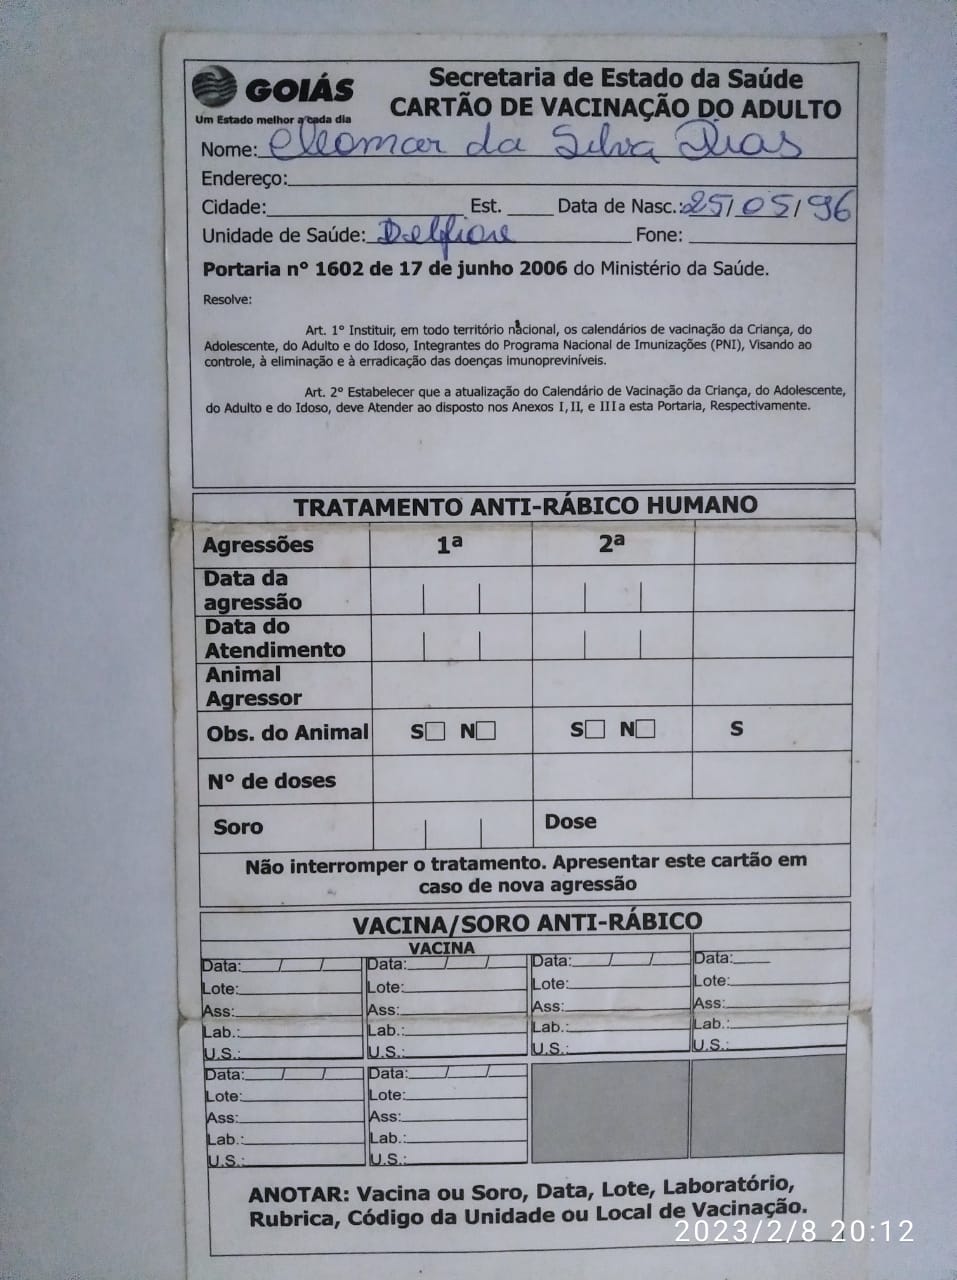 GOIÁS
Um Estado melhor a cada dia
Secretaria de Estado da Saúde
CARTÃO DE VACINAÇÃO DO ADULTO
Nome: Cleomar da Silva Dias
Endereço:
Cidade: Est. Data de Nasc.: 25/05/96
Unidade de Saúde: Delfiore Fone:
Portaria nº 1602 de 17 de junho 2006 do Ministério da Saúde.
Resolve:
Art. 1º Instituir, em todo território nacional, os calendários de vacinação da Criança, do
Adolescente, do Adulto e do Idoso, Integrantes do Programa Nacional de Imunizações (PNI), Visando ao
controle, à eliminação e à erradicação das doenças imunopreviníveis.
Art. 2º Estabelecer que a atualização do Calendário de Vacinação da Criança, do Adolescente,
do Adulto e do Idoso, deve Atender ao disposto nos Anexos I,II, e III a esta Portaria, Respectivamente.
TRATAMENTO ANTI-RÁBICO HUMANO
Agressões 1ª 2ª
Data da
agressão
Data do
Atendimento
Animal
Agressor
Obs. do Animal S N S N S
Nº de doses
Soro Dose
Não interromper o tratamento. Apresentar este cartão em
caso de nova agressão
VACINA/SORO ANTI-RÁBICO
VACINA
Data: / / Data: / / Data: / / Data:
Lote: Lote: Lote: Lote:
Ass: Ass: Ass: Ass:
Lab.: Lab.: Lab.: Lab.:
U.S.: U.S.: U.S.: U.S.:
Data: / / Data: / /
Lote: Lote:
Ass: Ass:
Lab.: Lab.:
U.S.: U.S.:
ANOTAR: Vacina ou Soro, Data, Lote, Laboratório,
Rubrica, Código da Unidade ou Local de Vacinação.
2023/2/8 20:12